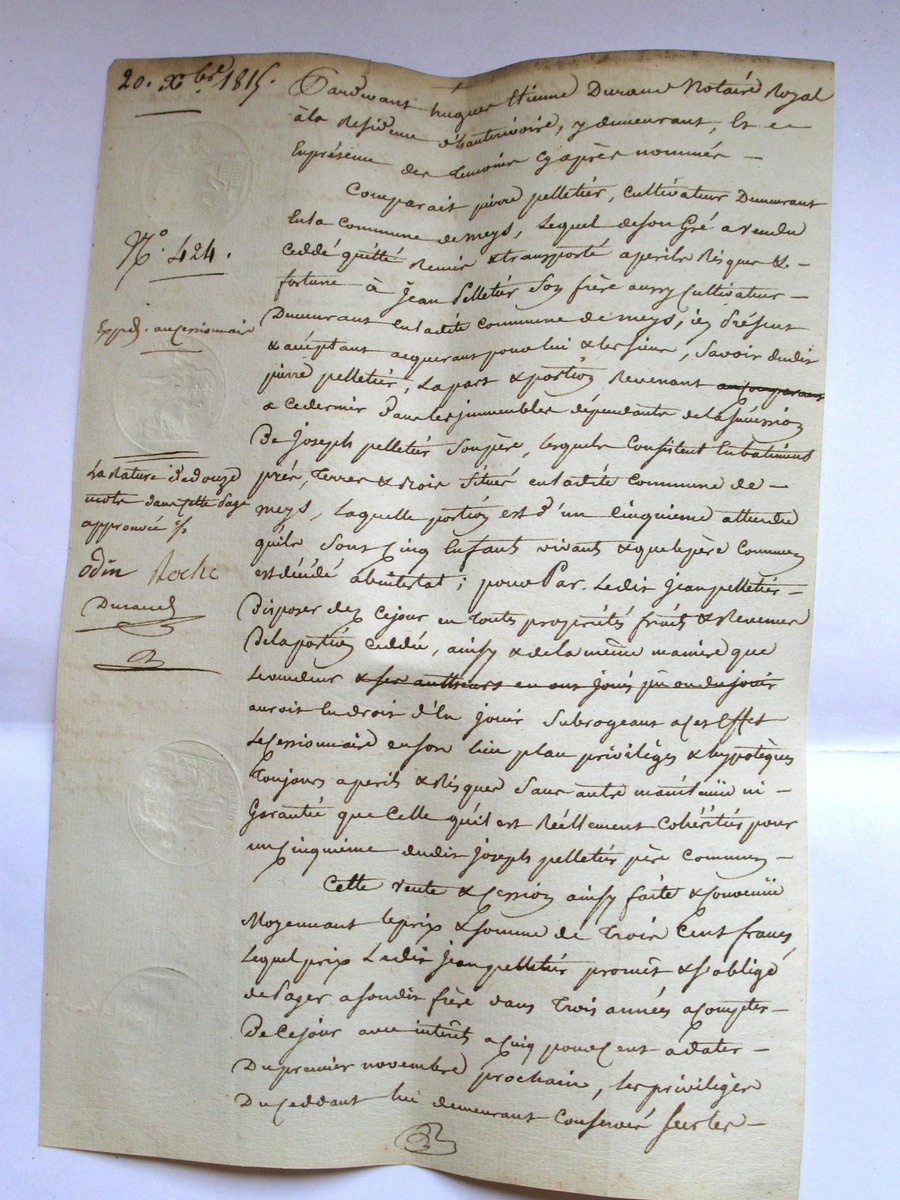 20. Xbre 1815.
Pardevant hugues Etienne Durand Notaire Royal
à la Residence d'hauterivoire, y demeurant, Et en
Enprésence des temoins cyaprès nommés —
N.o 424.
Comparait pierre pelletiér, cultivateur Demeurant
En la commune de meys, Lequel de son Gré a vendu
Ceddé quitté Remis & transporté a perils Risques &
fortune à Jean Pelletiér Son frère aussy Cultivateur —
Exped. au cessionnaire
Demeurant en ladite commune de meys, icy Présent
& acceptant acquerant pour lui & les siens, Savoir dudit
pierre pelletiér, La part & portion Revenant
a ce dernier Dans les jmmeubles dépendants de la succession
De Joseph pelletiér Son père, lesquels Consistent En batiments
prés, terres & Bois Situés en ladite Commune de —
meys, Laquelle portion est D'un Cinquieme attendu
qu'ils Sont Cinq Enfants vivants & que le père Commun
est décédé abintestat ; pour Par Ledit Jean pelletiér —
Disposer dez Cejour en toutes propriétés fruits & Revenus
De la portion Ceddée, ainsy & de la même maniere que
Le vendeur & ses autheurs en ont jouis pû ou du jouir
auroit Eu droit d'En jouir Subrogeant a cet Effet
Le Cessionnaire en son lieu place privilèges & hypotèques
Toujours a perils & Risques Sans autre maintenüe ni —
Garantie que Celle qu'il est Réellement Cohéritiér pour
un Cinquième dudit Joseph pelletiér père Commun —
La Rature de douze
mots dans cette Page
approuvée
Odin Roche
Durand
Cette vente & Cession ainsy faite & Convenüe
Moyennant le prix & Somme de trois Cent francs,
Lequel prix Ledit Jean pelletiér promêt & s'obligé
de Payer a sondit frère dans trois années a compter —
De Cejour avec intérêts a Cinq pour Cent à dater —
Du premier novembre prochain, les privilèges
Du Ceddant lui demeurant Conservés sur les —